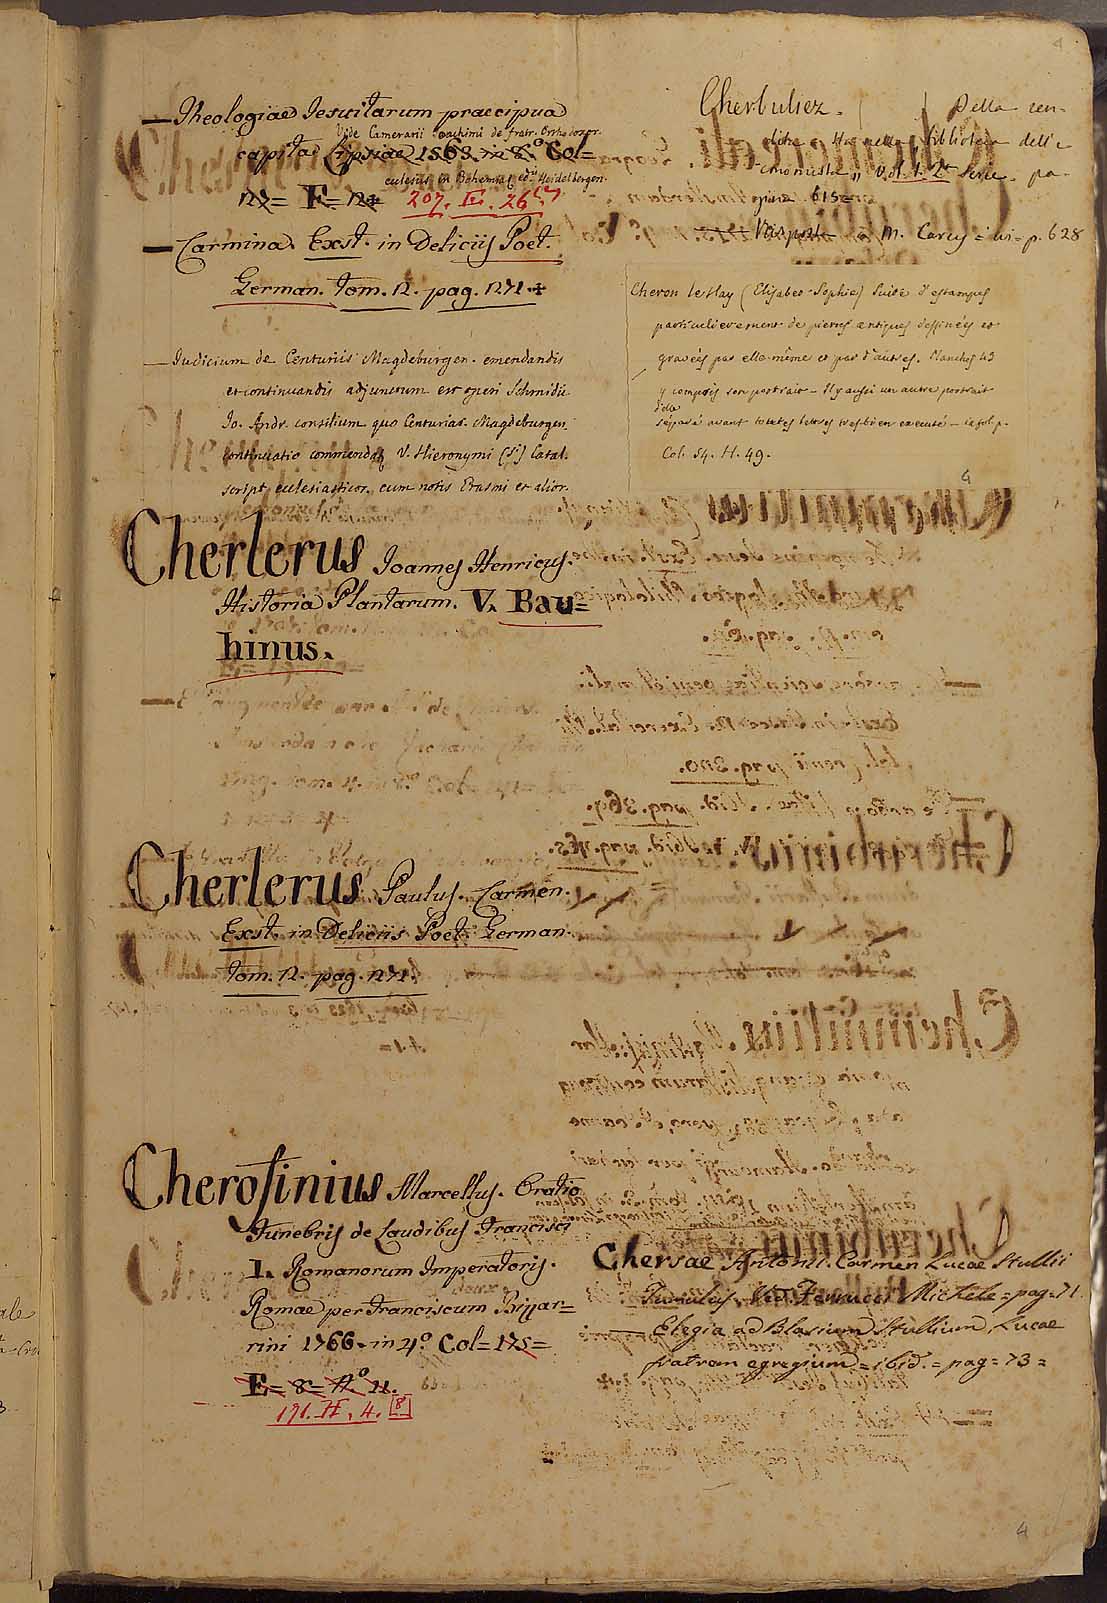 — Theologiae Jesuitarum praecipua
Vide Camerarii Joachimi de fratr. Orthodoxor.
capita Lipsiae 1563. in 8.º Col=
eclesiis in Bohemia ed.ⁿ Heidelbergen.
127= F= 124 207. IV. 26
— Carmina. Exst. in Deliciis Poet.
German. Tom. 12. pag. 1271.
— Iudicium de Centuriis Magdeburgen. emendandis
et continuandis adjunctum est operi Schmidii
Jo. Andr. consilium quo Centuriar. Magdeburgen.
continuatio commendat V. Hieronymi (S.) Catal.
script. ecclesiasticor. cum notis Erasmi et alior.
Cherlerus Joannes Henricus.
Historia Plantarum. V. Bau=
hinus.
Cherlerus Paulus. Carmen.
Exst. in Deliciis Poet. German.
Tom. 12. pag. 1271.
Cherofinius Marcellus. Oratio
Funebris de Laudibus Francisci
I. Romanorum Imperatoris.
Romae per Franciscum Bizzar=
rini 1766. in 4º. Col= 175=
F= 8= 4º 11.
191. II. 4. [8]
4
Cherbuliez. Della ren-
dita biblioteca dell'e
conomista „ Vol. 1. 2ª Serie. pa-
gina 615=
Rispost. a M. Carey = ivi = p. 628
Cheron le Hay (Elisabeo-Sophie) Suide d'estampes
particulierement de pierres antiques dessinées et
gravées par elle-même et par d'autres. Planches 43
y compris son portrait - Il y aussi un autre portrait
d'elle
séparé avant toutes letres tres bien executé - in fol. p.
Col. 54. H. 49.
G
Chersae Antonii. Carmen Lucae Stullii
Tumulus. Ved. Ferrucci Michele = pag = 71.
— Elegia ad Blasium Stullium Lucae
fratrem egregium = ibid. = pag = 73 =
4